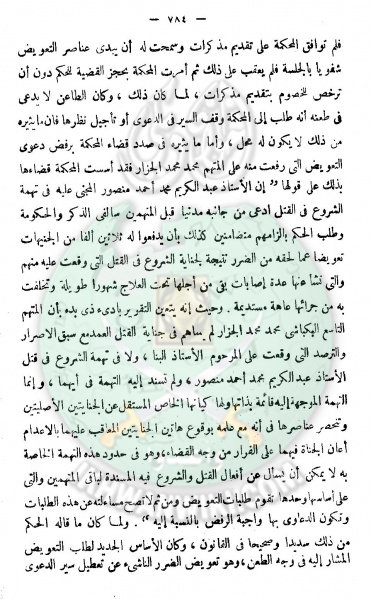 — ٧٨٤ —
فلم توافق المحكمة على تقديم مذكرات وسمحت له أن يبدى عناصر التعويض
شفويا بالجلسة فلم يعقب على ذلك ثم أمرت المحكمة بحجز القضية للحكم دون أن
ترخص للخصوم بتقديم مذكرات ، لما كان ذلك ، وكان الطاعن لا يدعى
فى طعنه أنه طلب إلى المحكمة وقف السير فى الدعوى أو تأجيل نظرها فان ما يثيره
من ذلك لا يكون له محل ، وأما ما يثيره فى صدد قضاء المحكمة برفض دعوى
التعويض التى رفعت منه على المتهم محمد محمد الجزار فقد أسست المحكمة قضاءها
بذلك على قولها " إن الأستاذ عبد الكريم محمد أحمد منصور المجنى عليه فى تهمة
الشروع فى القتل ادعى من جانبه مدنيا قبل المتهمين سالفى الذكر والحكومة
وطلب الحكم بالزامهم متضامنين كذلك بأن يدفعوا له ثلاثين ألفا من الجنيهات
تعويضا عما لحقه من الضرر نتيجة لجناية الشروع فى القتل التى وقعت عليه منهم
والتى نشأ عنها عدة إصابات بقى من أجلها تحت العلاج شهورا طويلة وتخلفت
به من جرائها عاهة مستديمة . وحيث إنه يتعين التقرير بادىء ذى بدء أن المتهم
التاسع البكباشى محمد محمد الجزار لم يساهم فى جناية القتل العمد مع سبق الاصرار
والترصد التى وقعت على المرحوم الأستاذ البنا ، ولا فى تهمة الشروع فى قتل
الأستاذ عبد الكريم محمد أحمد منصور ، ولم تسند إليه التهمة فى أيهما ، وإنما
التهمة الموجهة إليه قائمة بذاتها ولها كيانها الخاص المستقل عن الجنايتين الأصليتين
وتنحصر عناصرها فى أنه مع علمه بوقوع هاتين الجنايتين المعاقب عليهما بالاعدام
أعان الجناة فيهما على الفرار من وجه القضاء، وهو فى حدود هذه التهمة الخاصة
به لا يمكن أن يسأل عن أفعال القتل والشروع فيه المسندة لباقى المتهمين والتى
على أساسها وحدها تقوم طلبات التعويض ومن ثم لا تصح مساءلته عن هذه الطلبات
وتكون الدعاوى بها واجبة الرفض بالنسبة إليه " . ولما كان ما قاله الحكم
من ذلك سديدا وصحيحا فى القانون ، وكان الأساس الجديد لطلب التعويض
المشار إليه فى وجه الطعن، وهو تعويض الضرر الناشىء عن تعطيل سير الدعوى